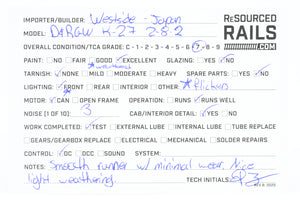 IMPORTER/BUILDER: Westside - Japan
RESOURCED RAILS .COM
MODEL D&RGW K-27 2-8-2
OVERALL CONDITION/TCA GRADE: C - 1 - 2 - 3 - 4 - 5 - 6 - 7 - 8 - 9
PAINT: NO FAIR GOOD ✓ EXCELLENT GLAZING: YES ✓ NO
TARNISH: ✓ NONE MILD MODERATE HEAVY SPARE PARTS: YES ✓ NO
LIGHTING: ✓ FRONT REAR INTERIOR OTHER: *Flickers
MOTOR: ✓ CAN OPEN FRAME OPERATION: RUNS ✓ RUNS WELL
NOISE [1 OF 10]: 3 CAB/INTERIOR DETAIL: ✓ YES NO
WORK COMPLETED: ✓ TEST EXTERNAL LUBE INTERNAL LUBE TUBE REPLACE
GEARS/GEARBOX REPLACE ELECTRICAL MECHANICAL SOLDER REPAIRS
CONTROL: ✓ DC DCC SOUND SYSTEM:
NOTES: Smooth runner w/ minimal wear. Nice
light weathering. TECH INITIALS: